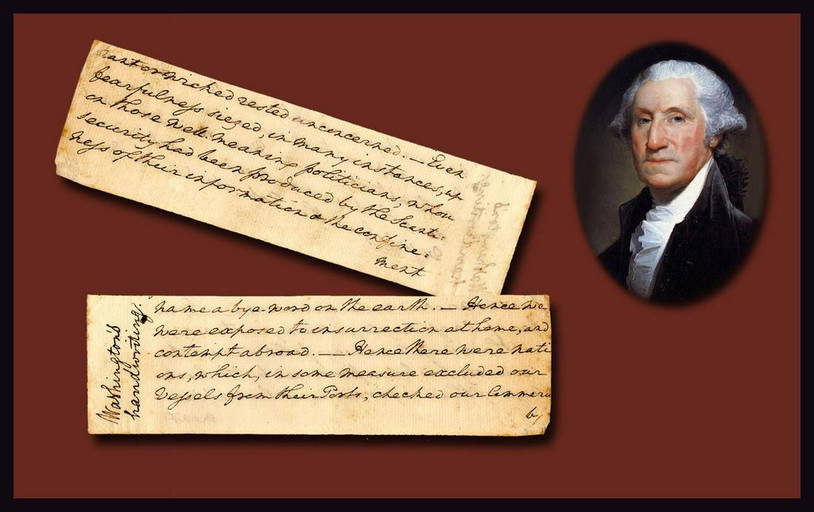 rant or wicked rested unconcerned. — Even
fearfulness siezed, in many instances, up
on those well-meaning politicians, whose
security had been produced by the Scanti-
ness of their information & the confine-
ment
Washington's
handwriting.
name a bye-word on the earth. — Hence we
were exposed to insurrection at home, and
contempt abroad. — Hence there were nati
ons, which, in some measure excluded our
Vessels from their Ports, checked our Commer
by